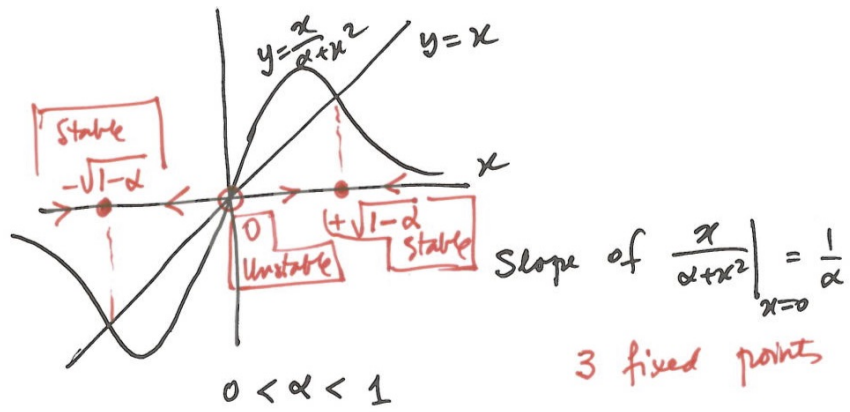 y = x/(α+x²)
y = x
Stable
-√1-α
x
0
Unstable
+√1-α
Stable
Slope of x/(α+x²)|x=0 = 1/α
3 fixed points
0 < α < 1